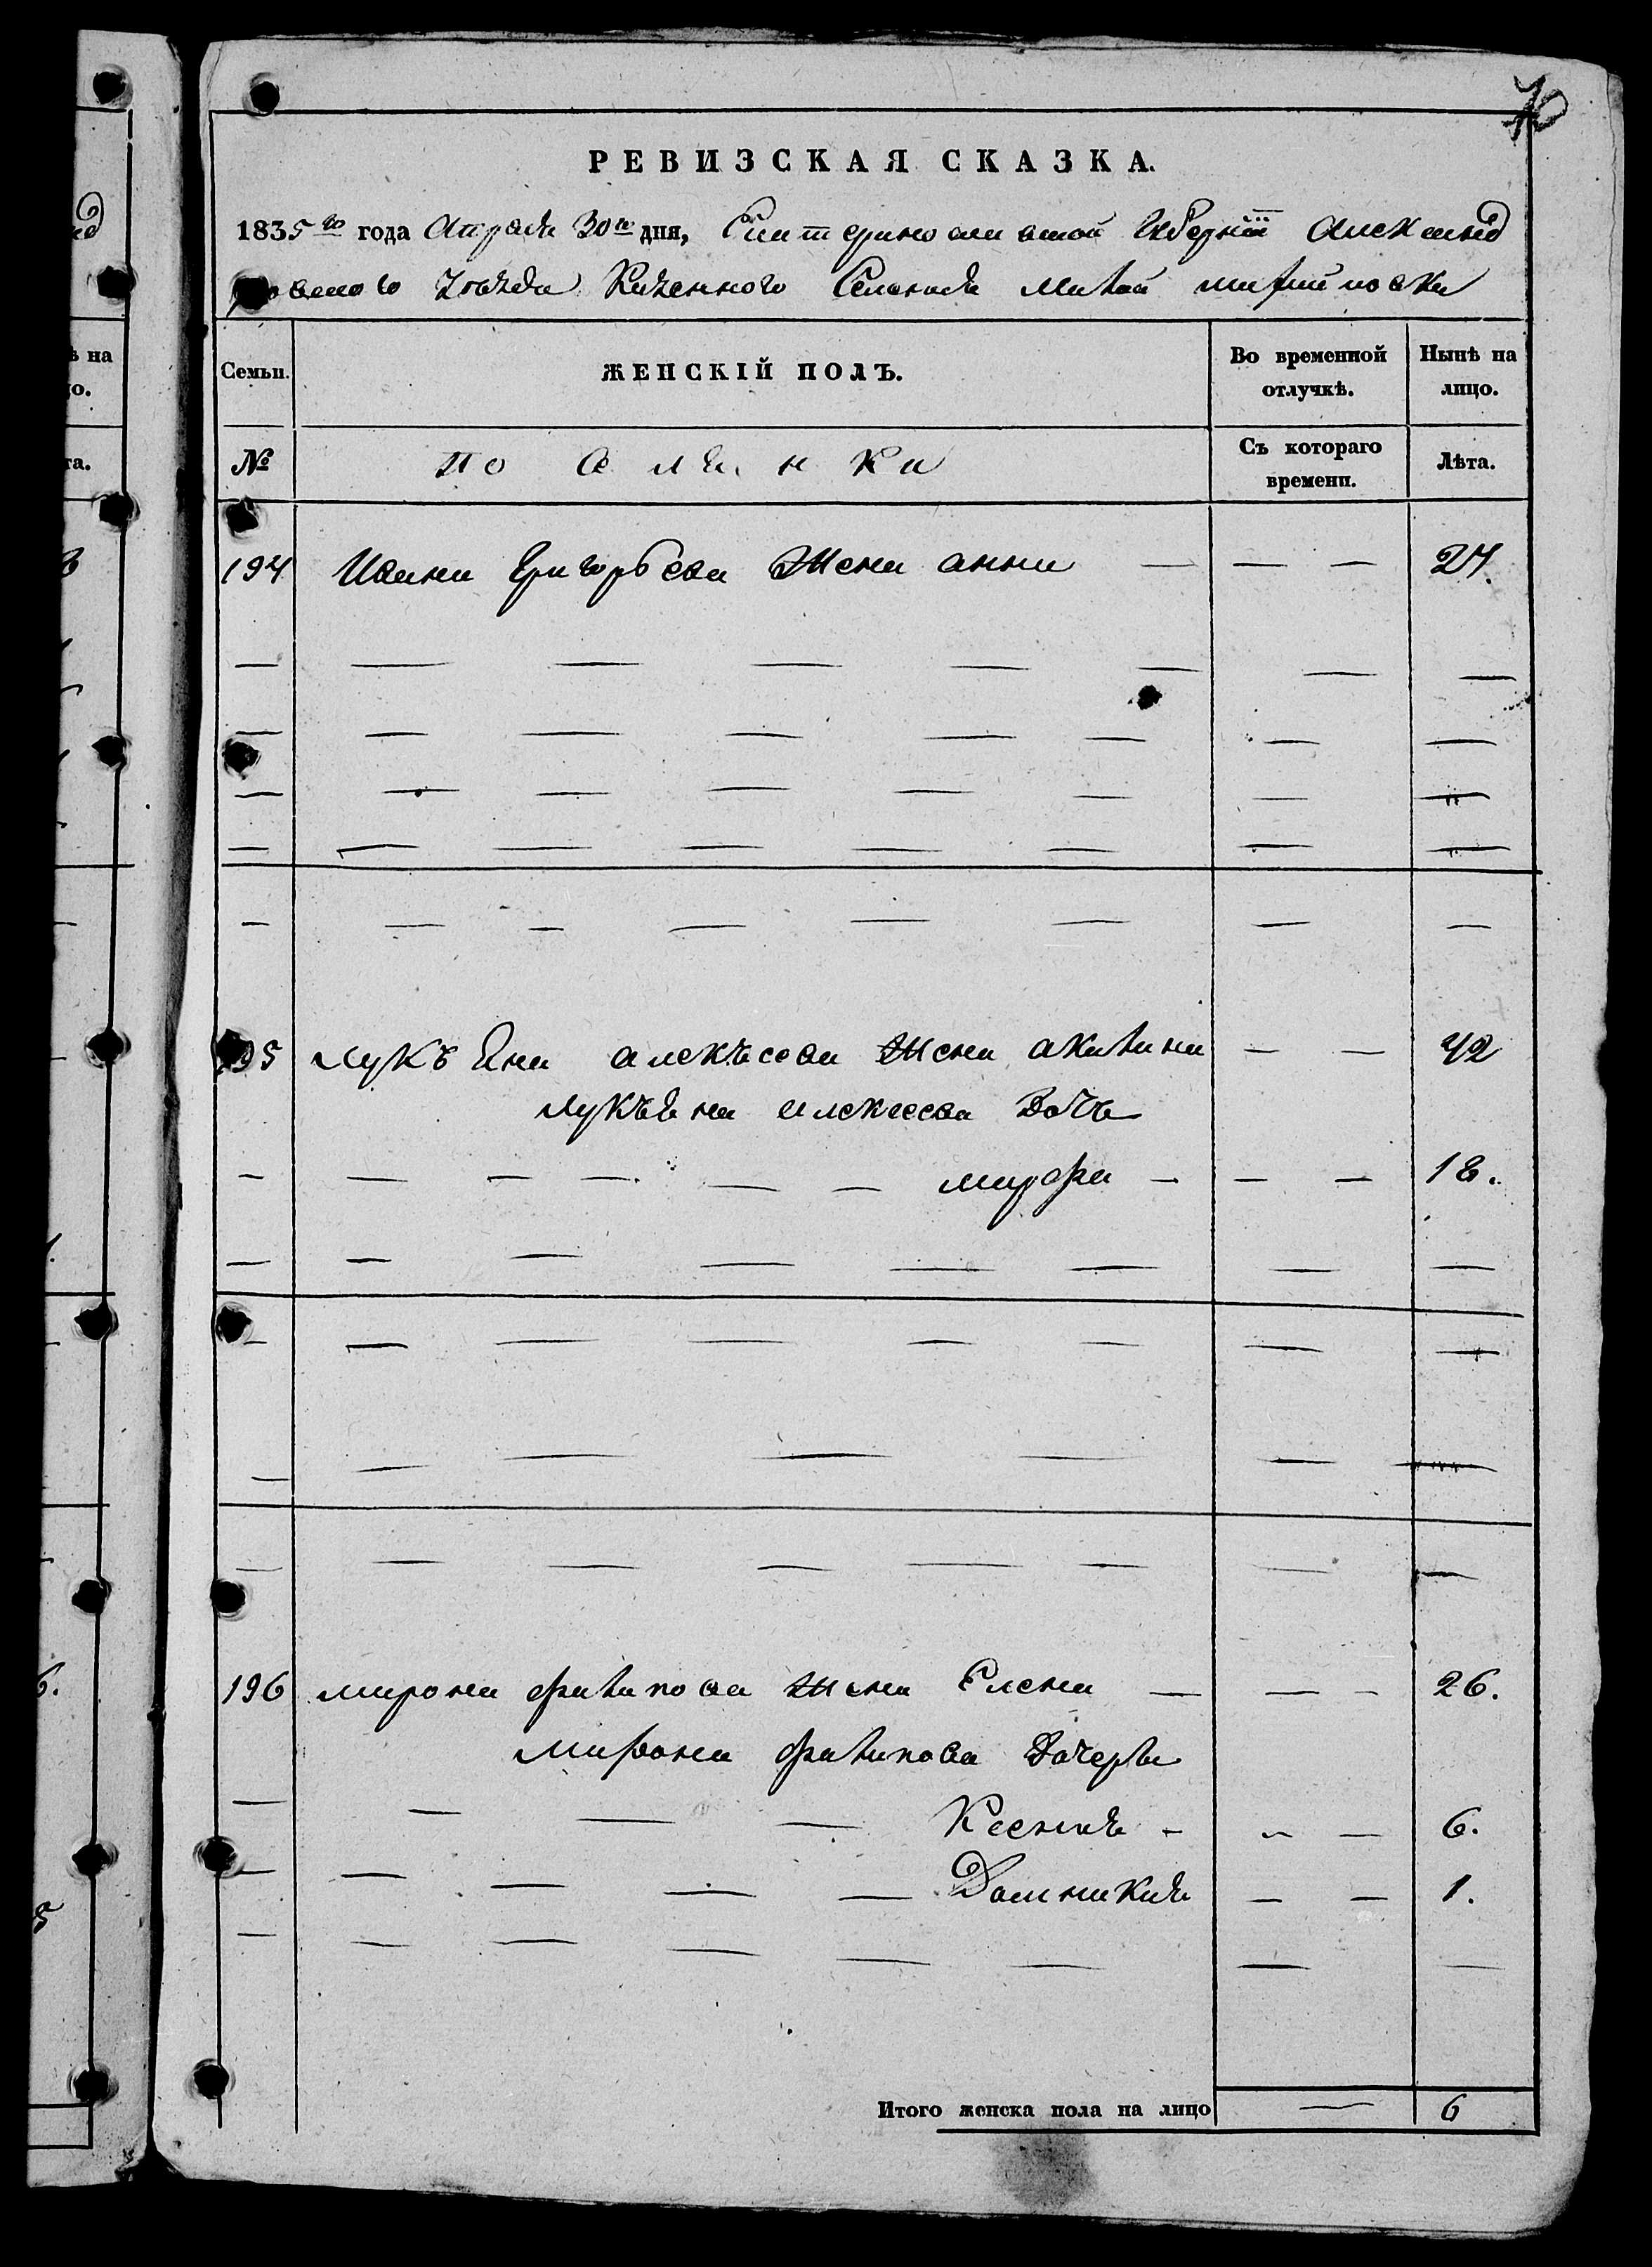 70
РЕВИЗСКАЯ СКАЗКА.
1835го года Апреля 30го дня, Екатеринославской Губернии Александ
ровского Уезда Казенного Селения Малой михайловки
Семьи. ЖЕНСКІЙ ПОЛЪ. Во временной отлучкѣ. Нынѣ на лицо.
№ поселянки Съ котораго времени. Лѣта.
194 Ивана Григорьева Жена анна — — — 27.
195 Лукъяна алекъсеева Жена акилина — — 42
Лукъяна алексеева Дочь
марфа — — — 18.
196 мирона филипова жена Елена — — — 26.
мирона филипова Дочери
Ксения — — — 6.
Домникия — — 1.
Итого женска пола на лицо — 6
ѣ на
ю.
та.